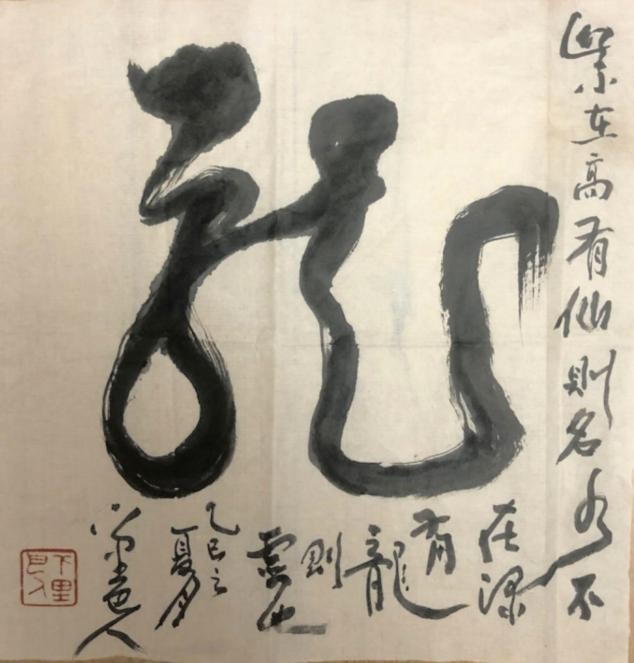 龍
在高有仙則名水不
在深
有龍
則
靈也
乙巳之
夏月
邑人
下里
巴人